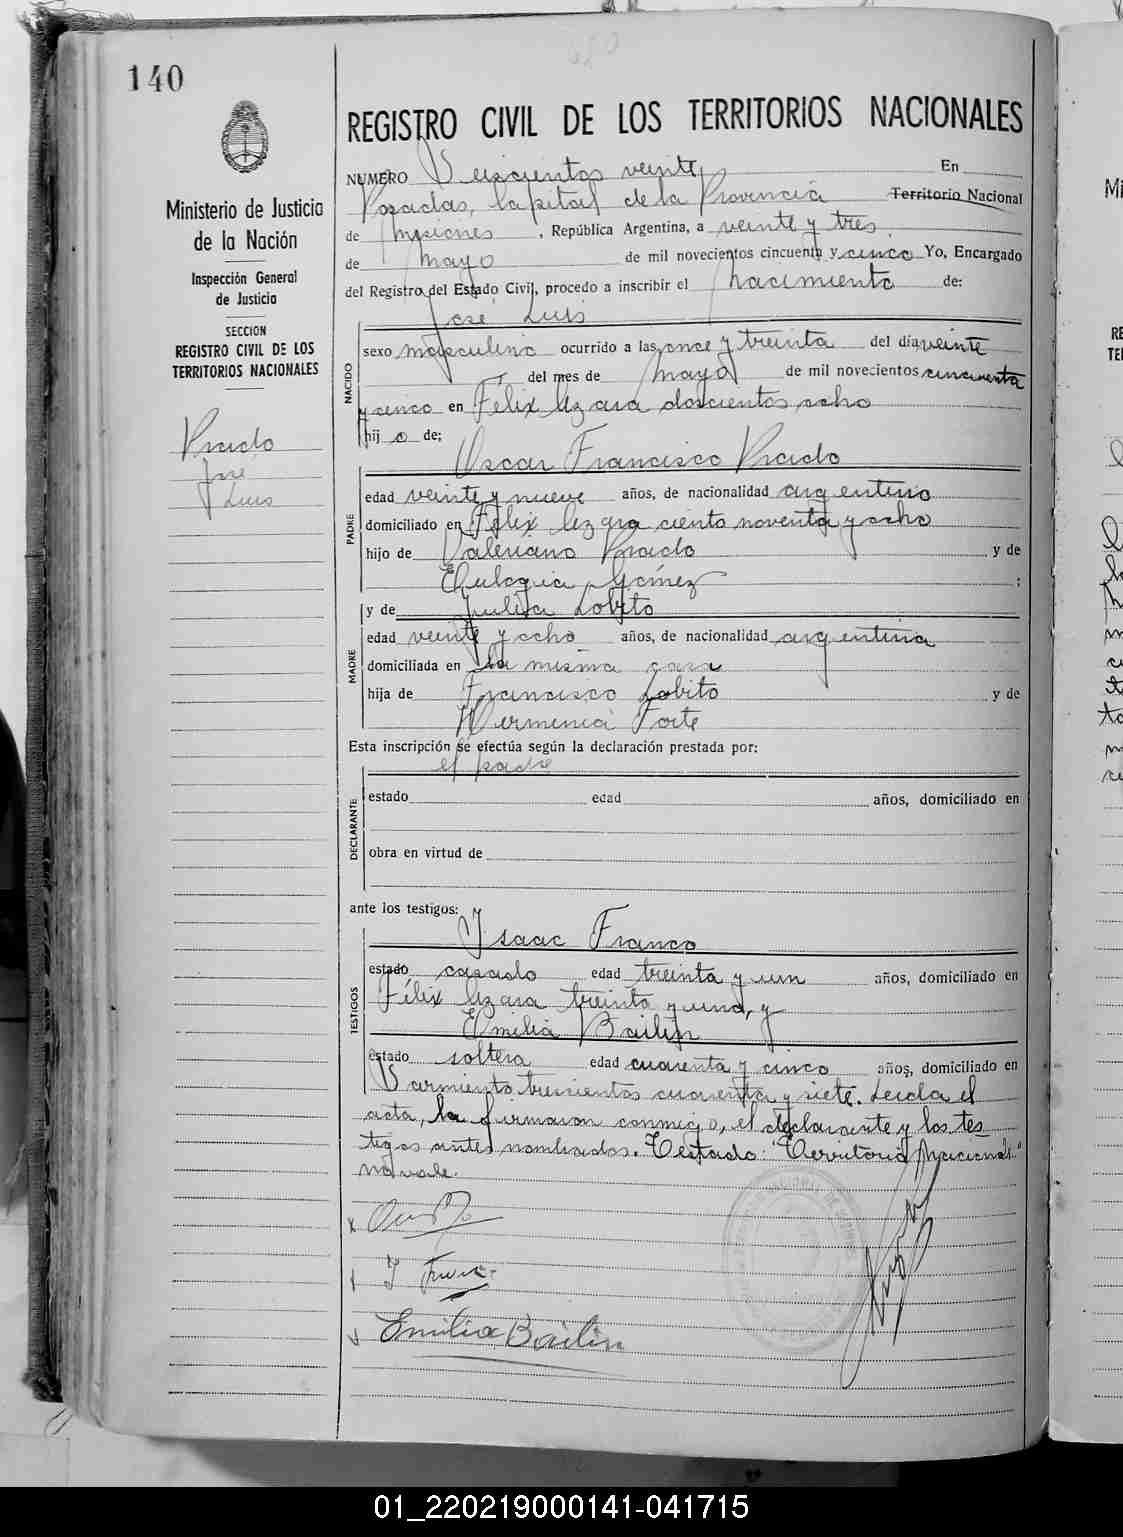 140
REGISTRO CIVIL DE LOS TERRITORIOS NACIONALES
Ministerio de Justicia
de la Nación
Inspección General
de Justicia
SECCION
REGISTRO CIVIL DE LOS
TERRITORIOS NACIONALES
Prado
José
Luis
NUMERO Seiscientos veinte En
Posadas, Capital de la Provincia Territorio Nacional
de Misiones, República Argentina, a veinte y tres
de Mayo de mil novecientos cincuenta y cinco Yo, Encargado
del Registro del Estado Civil, procedo a inscribir el nacimiento de:
José Luis
NACIDO
sexo masculino ocurrido a las once y treinta del día veinte
del mes de Mayo de mil novecientos cincuenta
y cinco en Félix Azara doscientos ocho
hijo de:
Oscar Francisco Prado
PADRE
edad veinte y nueve años, de nacionalidad argentino
domiciliado en Félix Azara ciento noventa y ocho
hijo de Valeriano Prado y de
Eulogia Gómez ;
y de Julia Lobito
MADRE
edad veinte y ocho años, de nacionalidad argentina
domiciliada en la misma casa
hija de Francisco Lobito y de
Herminia Forte
Esta inscripción se efectúa según la declaración prestada por:
el padre
DECLARANTE
estado edad años, domiciliado en
obra en virtud de
ante los testigos:
Isaac Franco
TESTIGOS
estado casado edad treinta y un años, domiciliado en
Félix Azara treinta y uno, y
Emilia Bailin
estado soltera edad cuarenta y cinco años, domiciliado en
Sarmiento trescientos cuarenta y siete. Leída el
acta, la firmaron conmigo, el declarante y los tes
tigos antes nombrados. Testado: "Territorio Nacional"
no vale.
I Franco
Emilia Bailin
01_220219000141-041715